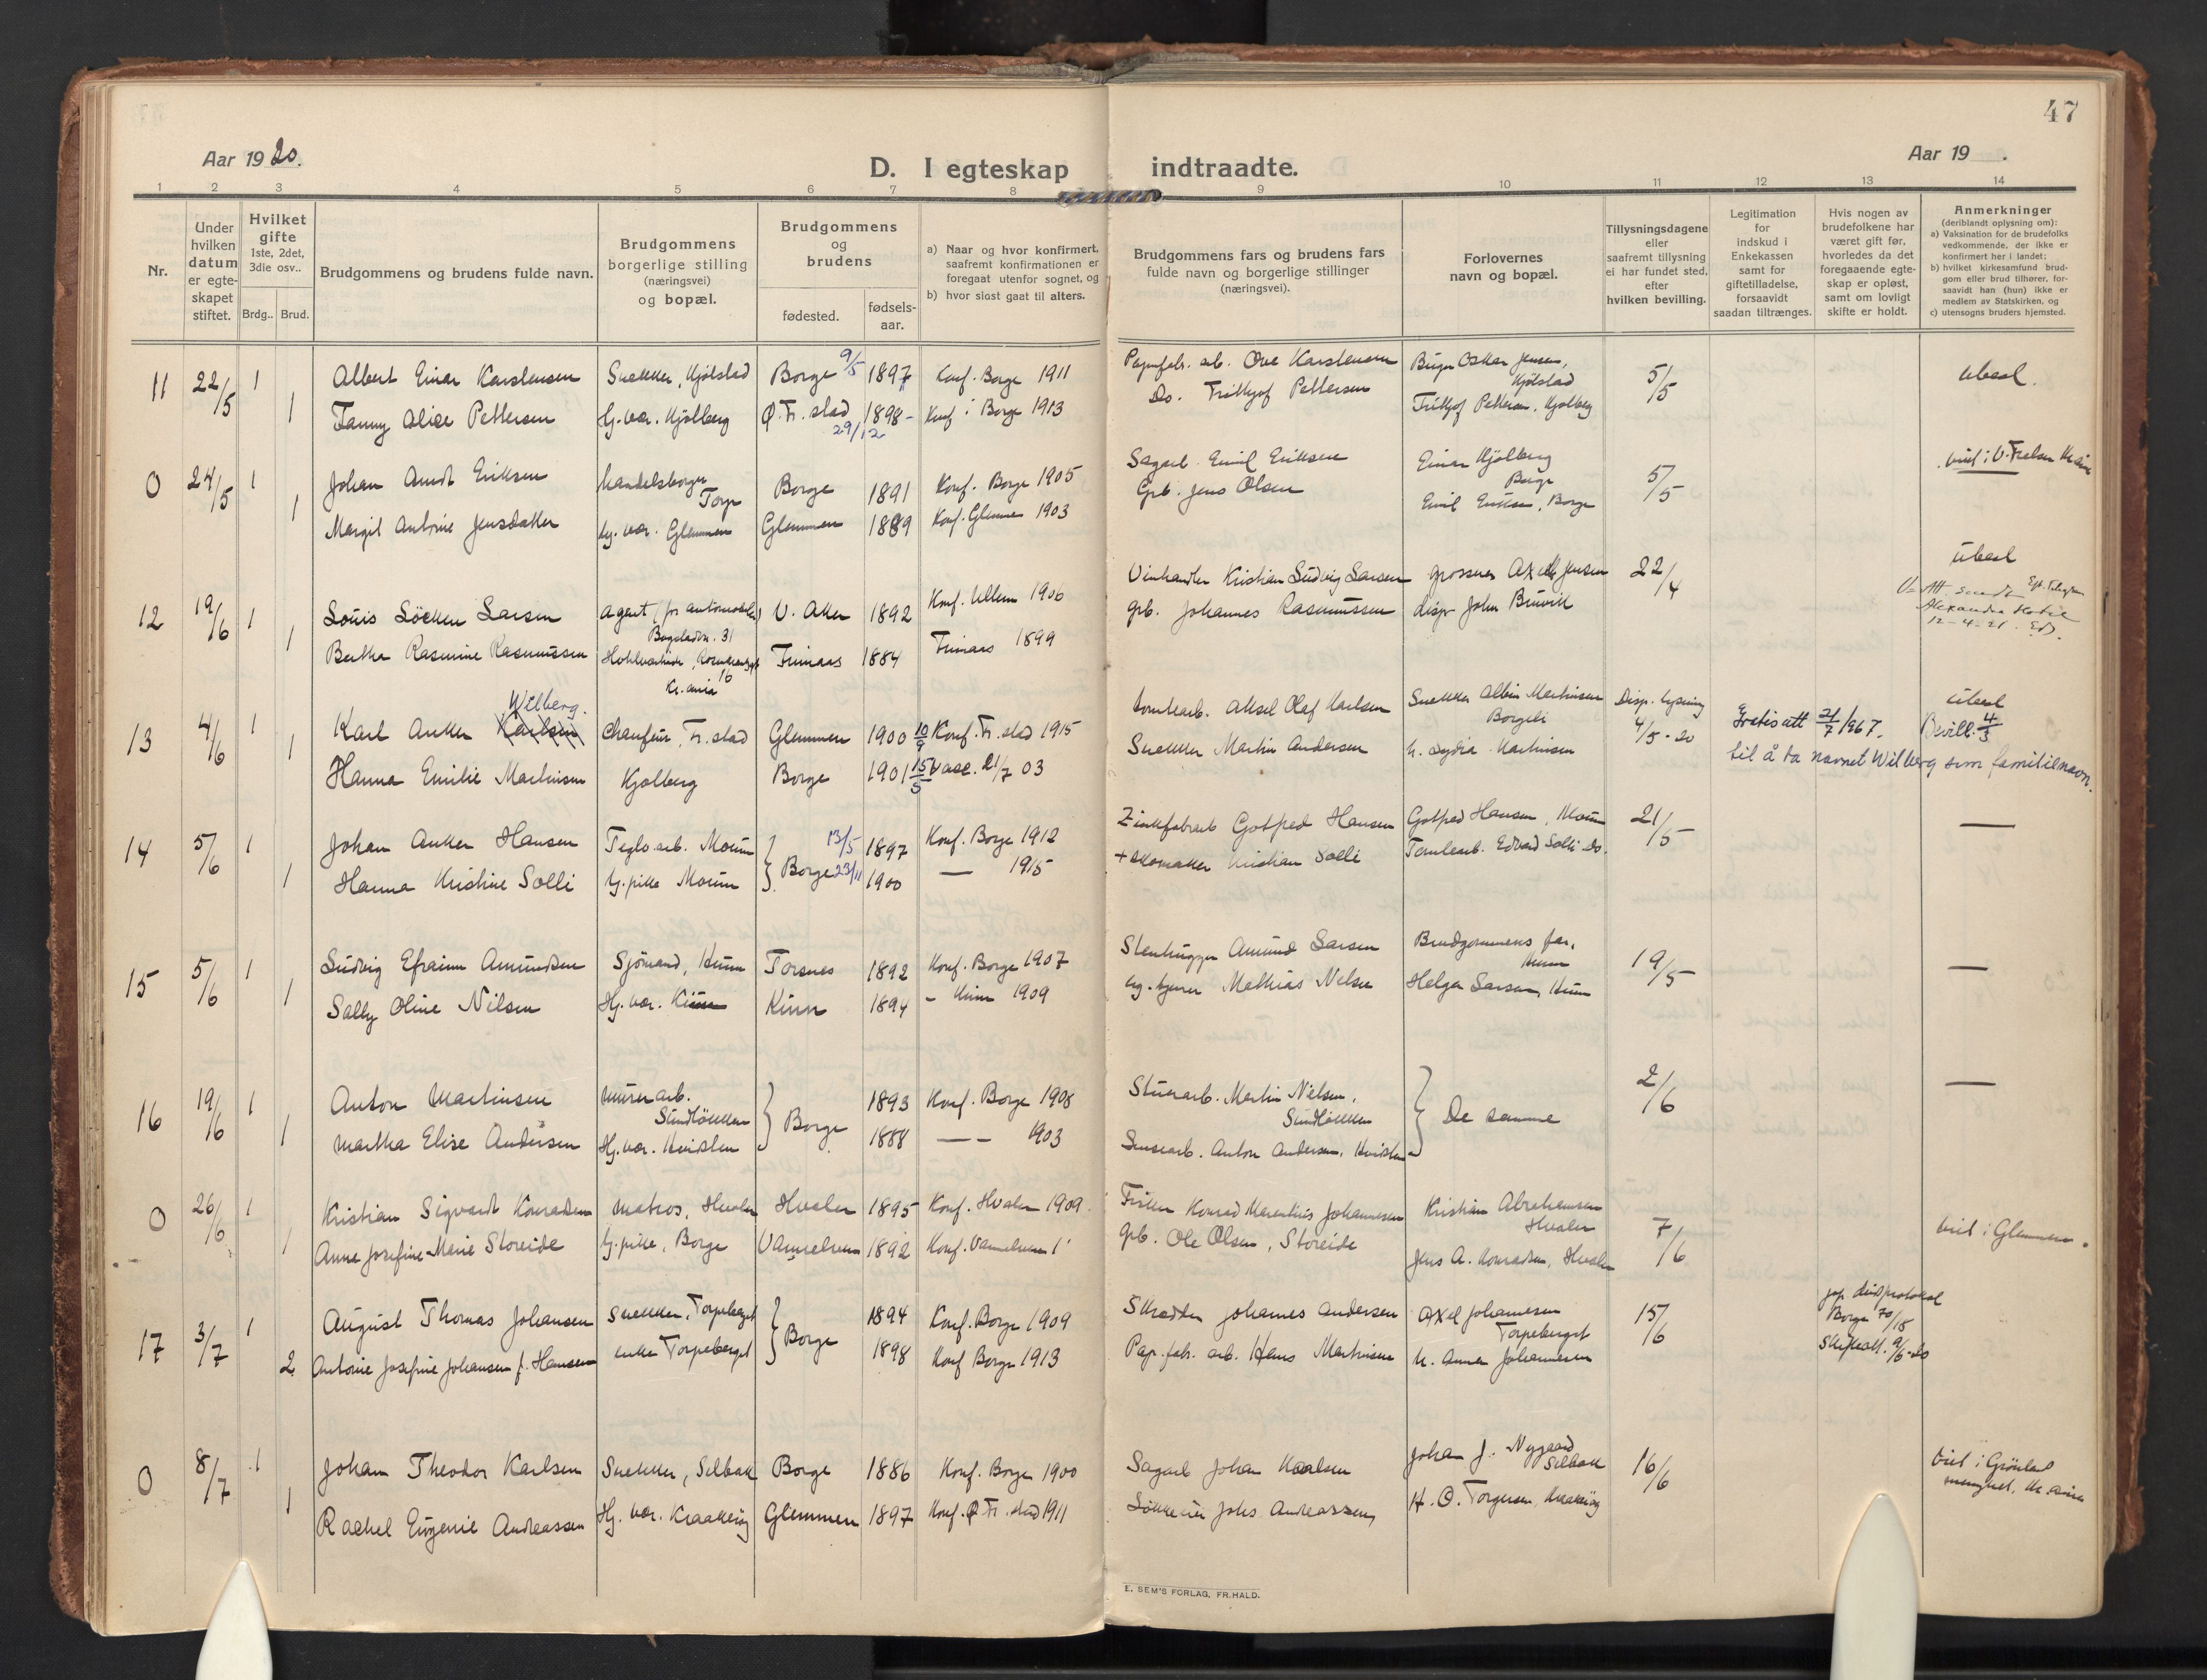 47
Aar 1920.
D. I egteskap indtraadte.
Aar 19 .
1 2 3 4 5 6 7 8 9 10 11 12 13 14
Nr.
Under hvilken datum er egte-skapet stiftet.
Hvilket gifte 1ste, 2det, 3die osv..
Brdg.. Brud.
Brudgommens og brudens fulde navn.
Brudgommens borgerlige stilling (næringsvei) og bopæl.
Brudgommens og brudens
fødested. fødsels-aar.
a) Naar og hvor konfirmert, saafremt konfirmationen er foregaat utenfor sognet, og
b) hvor sidst gaat til alters.
Brudgommens fars og brudens fars fulde navn og borgerlige stillinger (næringsvei).
Forlovernes navn og bopæl.
Tillysningsdagene eller saafremt tillysning ei har fundet sted, efter hvilken bevilling.
Legitimation for indskud i Enkekassen samt for giftetilladelse, forsaavidt saadan tiltrænges.
Hvis nogen av brudefolkene har været gift før, hvorledes da det foregaaende egte-skap er opløst, samt om lovligt skifte er holdt.
Anmerkninger (deriblandt oplysning om):
a) Vaksination for de brudefolks vedkommende, der ikke er konfirmert her i landet;
b) hvilket kirkesamfund brud-gom eller brud tilhører, for-saavidt han (hun) ikke er medlem av Statskirken, og
c) utensogns bruders hjemsted.
11 22/5 1 Albert Einar Karstensen Snekker, Kjølstad Borge 9/5 1897 Konf. Borge 1911 Papirfab. arb. Ove Karstensen Birger Oskar Jensen, Kjølstad 5/5 ubesl.
1 Fanny Alice Pettersen Hj. vær. Kjølberg Ø. Fr. stad 29/12 1898 Konf. i Borge 1913 Do. Frithjof Pettersen Frithjof Pettersen, Kjølberg
0 24/5 1 Johan Arndt Eriksen handelsborger Torp Borge 1891 Konf. Borge 1905 Sagarb. Emil Eriksen Einar Kjölberg Borge 5/5
1 Margit Antonie Jensdatter hj. vær. Glemmen Glemmen 1889 Konf. Glemmen 1903 Grb. Jens Olsen Emil Eriksen, Borge
12 19/6 1 Louis Löcken Larsen agent (for automobiler) Bogstadv. 31 V. Aker 1892 Konf. Ullern 1906 Vinhandler Kristian Ludvig Larsen grosserer Axel Jensen 22/4 ubesl
1 Bertha Rasmine Rasmussen 16 Kr.ania 1884 1899 grb. Johannes Rasmussen disp. John Bruvik
Alexandra Hotel 12-4-21.
13 4/6 1 Karl Anker Karlsen Wilberg. Chaufeur, Fr. stad Glemmen 1900 10/9 Konf. Fr. stad 1915 tomtearb. Aksel Olaf Karlsen Snekker Albin Martinsen Borgeli Disp. lysning 4/5-20 ubesl Bevill. 4/3
1 Hanna Emilie Martinsen Kjølberg Borge 1901 15/5 vacc. 21/7 03 Snekker Martin Andersen h. Lydia Martinsen
Gratis att 21/7 1967. til å ta navnet Wilberg som familienavn.
14 5/6 1 Johan Anker Hansen Teglv. arb. Moum 13/5 1897 Konf. Borge 1912 Zinkfabrarb Gotfred Hansen Gotfred Hansen, Moum 21/5 —
1 Hanna Kristine Solli hj. pike Moum Borge 23/11 1900 — 1915 + skomaker Kristian Solli Tomtearb. Edvard Solli do.
15 5/6 1 Ludvig Efraim Amundsen Sjömand, Torsnes 1892 Konf. Borge 1907 Stenhugger Amund Larsen Brudgommens far, 19/5 —
1 Sally Oline Nilsen Hj. vær. Kinn 1894 - Kinn 1909 Mathias Nilsen Helga Larsen,
16 19/6 1 Anton Martinsen murerarb. Sundløkken 1893 Konf. Borge 1908 Stuerarb. Martin Nielsen, Sundløkken De samme 2/6 —
1 Martha Elise Andersen Hj. vær. Borge 1888 — — 1903 Anton Andersen,
0 26/6 1 Kristian Sigvart Konradsen matros, Hvaler Hvaler 1895 Konf. Hvaler 1909. Fisker Konrad Marentius Johannesen Kristian Abrahamsen Hvaler 7/6 viet i Glemmen.
1 Anna Josefine Marie Storeide hj. pike, Borge Vannelven 1892 Konf. Vannelven grb. Ole Olsen, Storeide Jens A. Konradsen, Hvaler
17 3/7 1 August Thomas Johansen Snekker, Torpeberget 1894 Konf. Borge 1909 Skrædder Johannes Andersen Axel Johannesen Torpeberget 15/6
2 Antonie Josefine Johansen f. Hansen enke Torpeberget Borge 1898 Konf Borge 1913 Pap. fab. arb. Hans Martinsen h. Anna Johannesen
Borge Skifteatt. 9/6-20
0 8/7 1 Johan Theodor Karlsen Snekker, Selbak Borge 1886 Konf. Borge 1900 Sagarb Johan Karlsen Johan J. Nygaard Selbak 16/6 viet i Grönland menighet, Kr.ania
1 Rachel Eugenie Andreassen Hj. vær. Kraakerøy Glemmen 1897 Konf. Ø Fr. stad 1911 Johs Andreassen H. O. Torgersen, Kraakerøy
E. SEM'S FORLAG, FR.HALD.